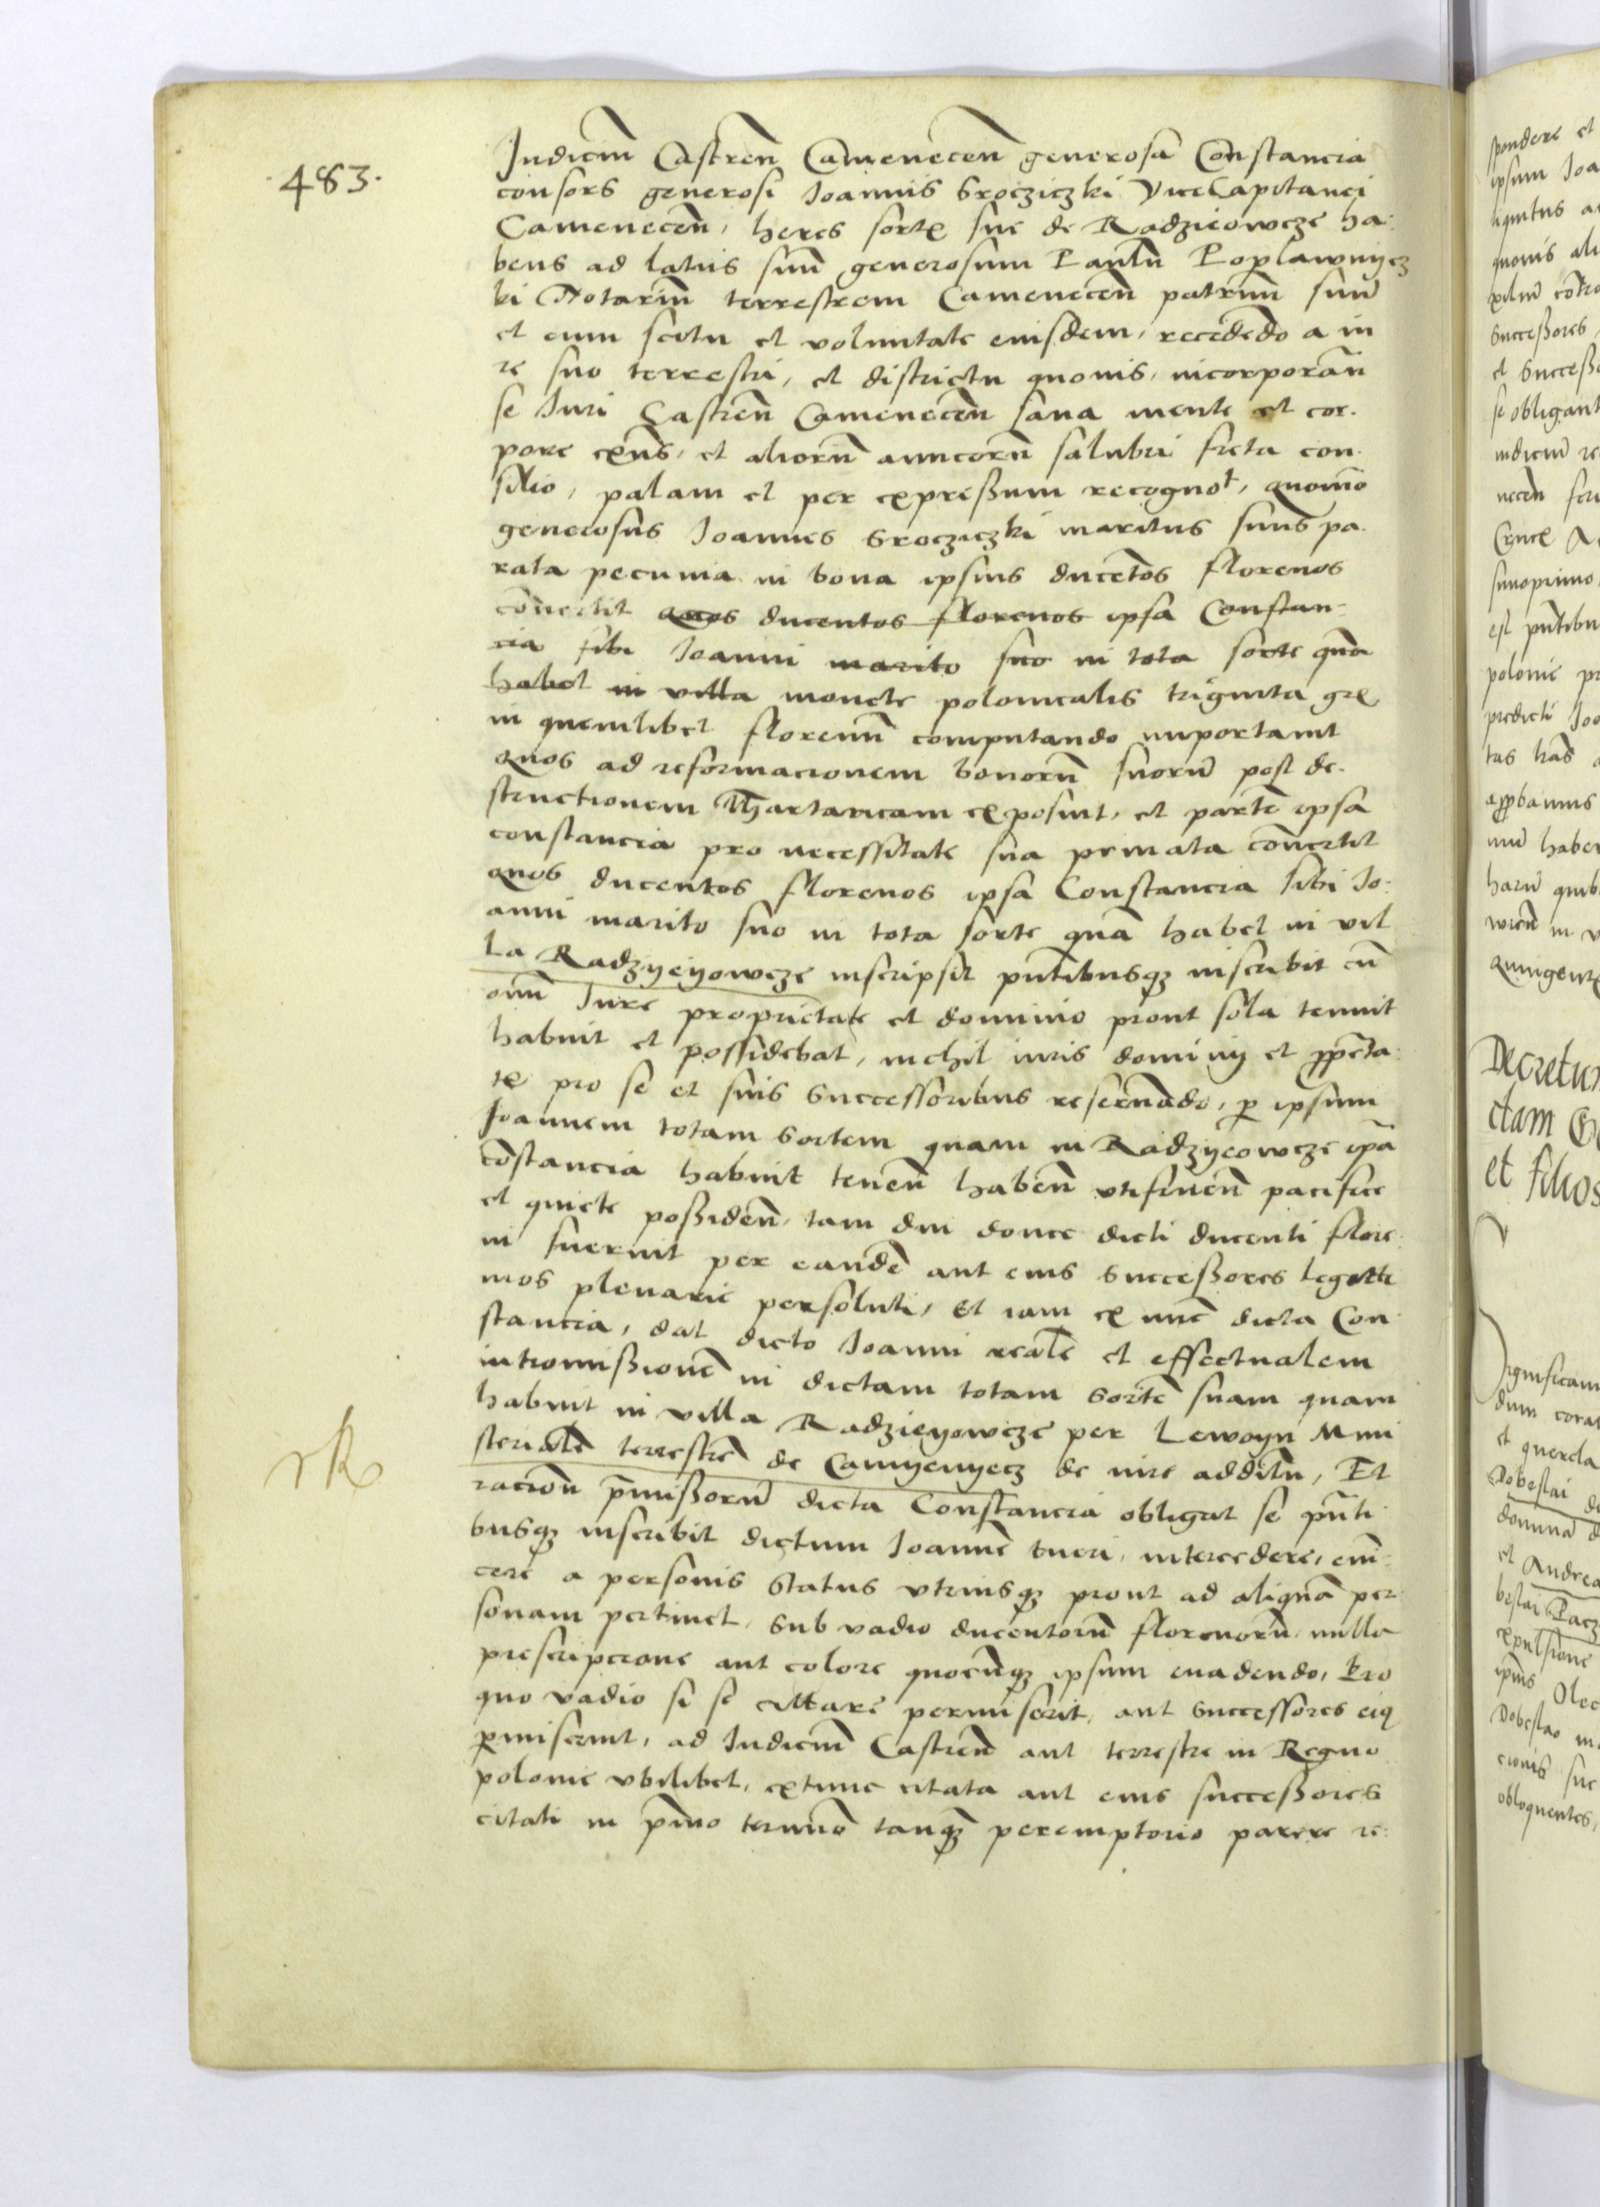 483.
Iudiciũ Castreñ Cameneceñ generosa Constancia
consors generosi Ioannis Srocziczki ViceCapitanei
Cameneceñ, heres sortę sue de Radzieowcze ha-
bens ad latus suũ generosum Paulũ Poplawnycz
ki Notariũ terrestrem Cameneceñ patruũ suũ
et cum scitu et voluntate eiusdem, recedẽdo a iu
re suo terrestri, et districtu quouis, incorporañ
se Iuri Castreñ Cameneceñ sana mente et cor-
pore exñs, et aliorũ amicorũ salubri freta con-
silio, palam et per expressum recognot, quomõ
generosus Ioannes Sroczıczki maritus suus pa-
rata pecunia in bona ipsius ducẽtos florenos
cõuertit quos ducentos florenos ipsa Constan-
cia sibi Ioanni marito suo in tota sorte quã
habet in villa monete polonicalis triginta grę
in quemlibet florenũ computando importauit
Quos ad reformacionem bonorũ suorũ post de-
structionem Thartaricam exposuit, et partẽ ipsa
constancia pro necessitate sua priuata cõuertit
quos ducentos florenos ipsa Constancia sibi Io-
anni marito suo in tota sorte quã habet in vil
la Radzyeyowcze inscripsit pñtibusqʒ inscribit cũ
omni Iure proprietate et dominio prout sola tenuit
habuit et possidebat, nichil iuris dominij et ppẽta-
te pro se et suis successoribus reseruãdo, p ipsum
Ioannem totam sortem quam in Radzyeowcze ipã
cõstancia habuit teneñ habeñ vtifrueñ pacifice
et quiete possideñ, tam diu donec dicti ducenti flore-
ni fuerint per eandẽ aut eius successores legitti
mos plenarie persoluti, Et iam ex nũc dicta Con-
stancia, dat dicto Ioanni realẽ et effectualem
intromissionẽ in dictam totam sortẽ suam quam
habuit in villa Radzieyowcze per Lewoyn Mini
sterialẽ terrestrẽ de Camyenyecz de iure additũ, Et
rk
racioñ pmissorũ dicta Constancia obligat se pñti
busqʒ inscribit dictum Ioannẽ tueri, intercedere, eui-
cere a personis status vtriusqʒ prout ad aliquã per-
sonam pertinet, sub vadio ducentorũ florenorũ, nulla
prescripcione aut colore quocũqʒ ipsum euadendo, Pro
quo vadio si se cittare permiserit, aut successores eiꝰ
pmiserint, ad Iudiciũ Castreñ aut terrestre in Regno
polonie vbilibet, extunc citata aut eius successores
citati in pmo termino tanqʒ peremptorio parere re-
spondere et
ipsum Ioa
quouis ali
successores
et successo
se obligant
polonie pr
predicti Ioo
quingentę
Decretum
ctam
et filios
dum corat
et querela
Dobestai
et Andrea
expulsione
obloquentes,